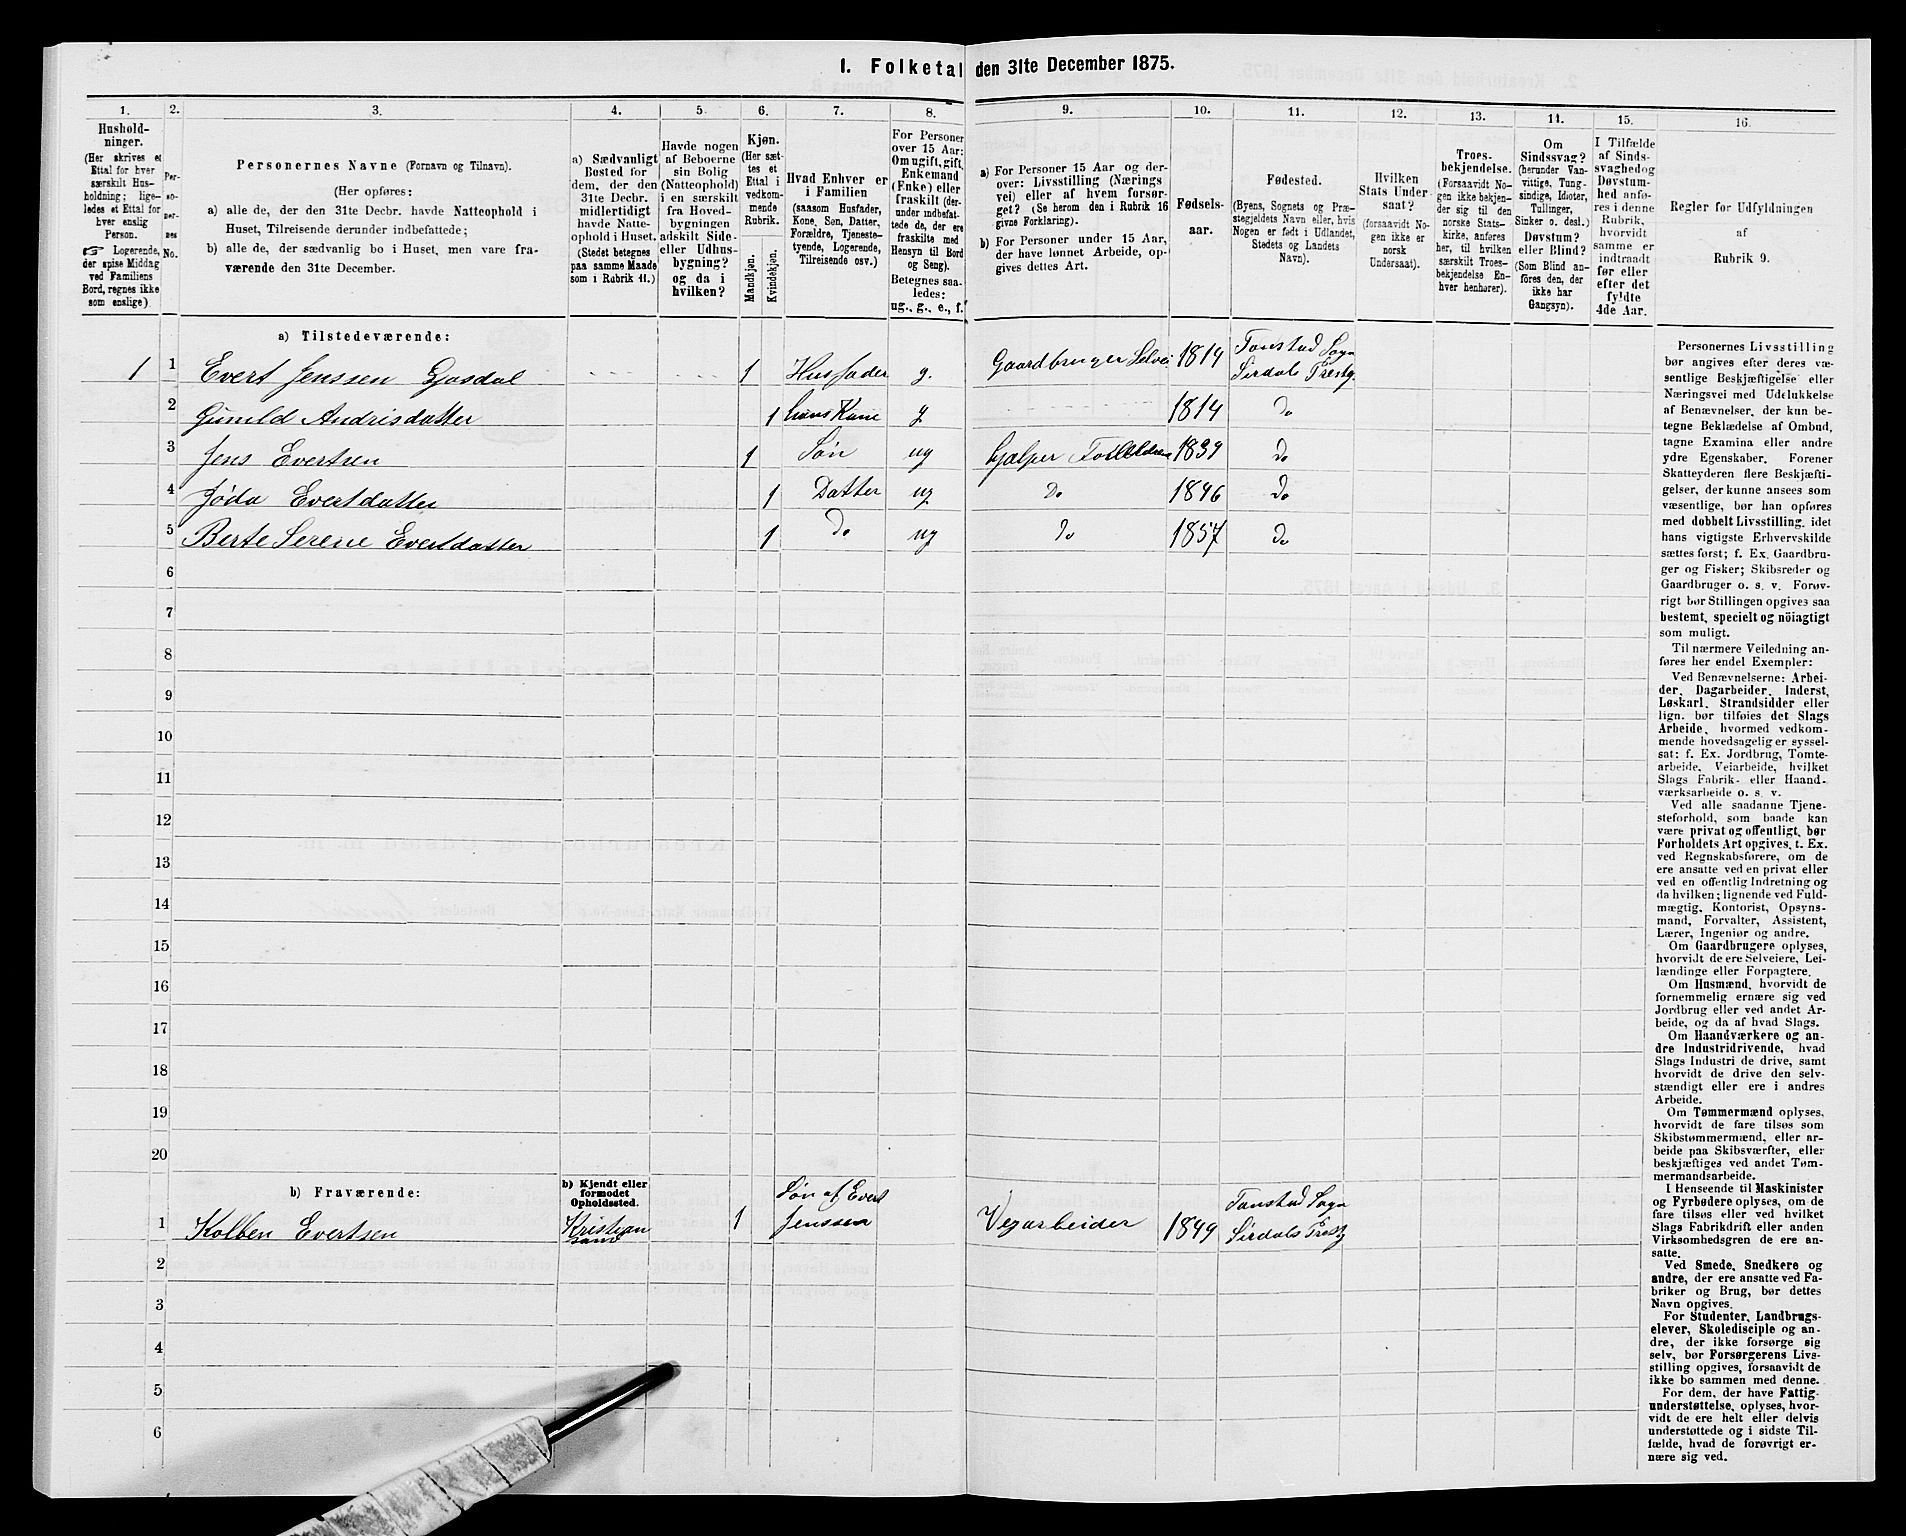 1. Folketal den 31te December 1875.
1.
Hushold-
ninger.
(Her skrives et
Ettal for hver
særskilt Hus-
holdning; lige-
ledes et Ettal for
hver enslig
Person.
☞ Logerende,
der spise Middag
ved Familiens
Bord, regnes ikke
som enslige).
2.
Per-
so-
ner-
nes
No.
3.
Personernes Navne (Fornavn og Tilnavn).
(Her opføres:
a) alle de, der den 31te Decbr. havde Natteophold i
Huset, Tilreisende derunder indbefattede;
b) alle de, der sædvanlig bo i Huset, men vare fra-
værende den 31te December.
4.
a) Sædvanligt
Bosted for
dem, der den
31te Decbr.
midlertidigt
havde Natte-
ophold i Huset.
(Stedet betegnes
paa samme Maade
som i Rubrik 11.)
5.
Havde nogen
af Beboerne
sin Bolig
(Natteophold)
i en særskilt
fra Hoved-
bygningen
adskilt Side-
eller Udhus-
bygning?
og da i
hvilken?
6.
Kjøn.
(Her sæt-
tes et
Ettal i
vedkom-
mende
Rubrik.
Mandkjøn.
Kvindekjøn.
7.
Hvad Enhver er
i Familien
(saasom Husfader,
Kone, Søn, Datter,
Forældre, Tjeneste-
tyende, Logerende,
Tilreisende osv.)
8.
For Personer
over 15 Aar:
Om ugift, gift,
Enkemand
(Enke) eller
fraskilt (der-
under indbefat-
tede de, der ere
fraskilte med
Hensyn til Bord
og Seng).
Betegnes saa-
ledes:
ug., g., e., f.
9.
a) For Personer 15 Aar og der-
over: Livsstilling (Nærings
vei) eller af hvem forsør-
get? (Se herom den i Rubrik 16
givne Forklaring).
b) For Personer under 15 Aar,
der have lønnet Arbeide, op-
gives dettes Art.
10.
Fødsels-
aar.
11.
Fødested.
(Byens, Sognets og Præ-
stegjeldets Navn eller, hvis
Nogen er født i Udlandet,
Stedets og Landets
Navn).
12.
Hvilken
Stats Under-
saat?
(forsaavidt No-
gen ikke er
norsk
Undersaat).
13.
Troes-
bekjendelse.
(Forsaavidt No-
gen ikke bekjen-
der sig til den
norske Stats-
kirke, anføres
her, til hvilken
særskilt Troes-
bekjendelse En-
hver henhører).
14.
Om
Sindssvag?
(herunder Van-
vittige, Tung-
sindige, Idioter,
Tullinger,
Sinker o. desl.)
Døvstum?
eller Blind?
(Som Blind an-
føres den, der
ikke har
Gangsyn).
15.
I Tilfælde
af Sinds-
svaghed og
Døvstum-
hed anfø-
res i denne
Rubrik,
hvorvidt
samme er
indtraadt
før eller
efter det
fyldte
4de Aar.
16.
Regler for Udfyldningen
af
Rubrik 9.
a) Tilstedeværende:
1 1 Evert Jenssen Gjosdal 1 Husfader g. Gaardbruger Selvei 1814 Tonstad Sogn
Sirdals Prestg.
2 Gunild Andrisdatter 1 hans Kone g 1814 do
3 Jens Evertsen 1 Søn ug hjælper Forældrene 1839 do
4 Jøda Evertdatter 1 Datter ug Do 1846 do
5 Berte Serene Evertdatter 1 do ug do 1857 do
6
7
8
9
10
11
12
13
14
15
16
17
18
19
20
b) Fraværende:
b) Kjendt eller
formodet
Opholdssted.
1 Kolben Evertsen Kristian
sand 1 Søn af Evert
Jenssen Vejarbeider 1849 Tonstad Sogn
Sirdals Prestg
2
3
4
5
6
Personernes Livsstilling
bør angives efter deres væ-
sentlige Beskjæftigelse eller
Næringsvei med Udelukkelse
af Benævnelser, der kun be-
tegne Beklædelse af Ombud,
tagne Examina eller andre
ydre Egenskaber. Forener
Skatteyderen flere Beskjæfti-
gelser, der kunne ansees som
væsentlige, bør han opføres
med dobbelt Livsstilling, idet
hans vigtigste Erhvervskilde
sættes først; f. Ex. Gaardbru-
ger og Fisker; Skibsreder og
Gaardbruger o. s. v. Forøv-
rigt bør Stillingen opgives saa
bestemt, specielt og nöiagtigt
som muligt.
Til nærmere Veiledning an-
føres her endel Exempler:
Ved Benævnelserne: Arbei-
der, Dagarbeider, Inderst,
Løskarl, Strandsidder eller
lign. bør tilføies det Slags
Arbeide, hvormed vedkom-
mende hovedsagelig er syssel-
sat: f. Ex. Jordbrug, Tomte-
arbeide, Veiarbeide, hvilket
Slags Fabrik- eller Haand-
værksarbeide o. s. v.
Ved alle saadanne Tjene-
steforhold, som baade kan
være privat og offentligt, bør
Forholdets Art opgives, t. Ex.
ved Regnskabsførere, om de
ere ansatte ved en privat eller
ved en offentlig Indretning og
da hvilken; lignende ved Fuld-
mægtig, Kontorist, Opsyns-
mand, Forvalter, Assistent,
Lærer, Ingeniør og andre.
Om Gaardbrugere oplyses,
hvorvidt de ere Selveiere, Lei-
lændinge eller Forpagtere.
Om Husmænd, hvorvidt de
fornemmelig ernære sig ved
Jordbrug eller ved andet Ar-
beide, og da af hvad Slags.
Om Haandværkere og an-
dre Industridrivende, hvad
Slags Industri de drive, samt
hvorvidt de drive den selv-
stændigt eller ere i andres
Arbeide.
Om Tømmermænd oplyses,
hvorvidt de fare tilsøs som
Skibstømmermænd, eller ar-
beide paa Skibsværfter, eller
beskjæftiges ved andet Tøm-
mermandsarbeide.
I Henseende til Maskinister
og Fyrbødere oplyses, om de
fare tilsøs eller ved hvilket
Slags Fabrikdrift eller anden
Virksomhedsgren de ere an-
satte.
Ved Smede, Snedkere og
andre, der ere ansatte ved Fa-
briker og Brug, bør dettes
Navn opgives.
For Studenter, Landbrugs-
elever, Skoledisciple og an-
dre, der ikke forsørge sig
selv, bør Forsørgerens Livs-
stilling opgives, forsaavidt de
ikke bo sammen med denne.
For dem, der have Fattig-
understøttelse, oplyses, hvor-
vidt de ere helt eller delvis
understøttede og i sidste Til-
fælde, hvad de forøvrigt er-
nære sig ved.